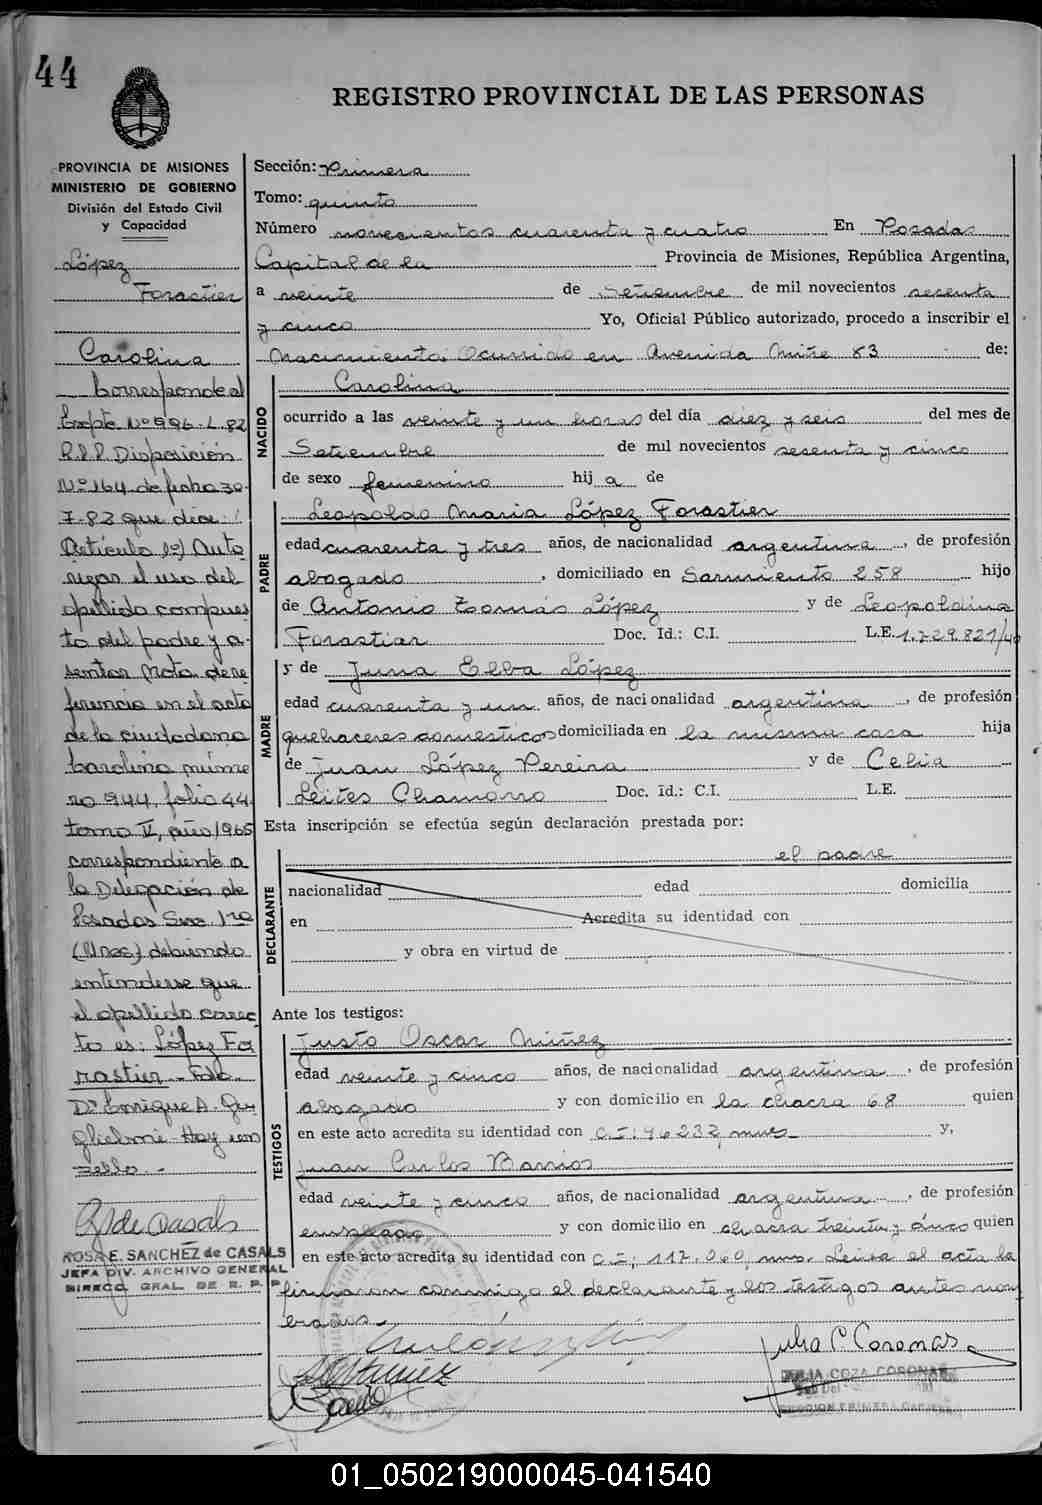 44
REGISTRO PROVINCIAL DE LAS PERSONAS
PROVINCIA DE MISIONES
MINISTERIO DE GOBIERNO
División del Estado Civil
y Capacidad
López
Forastier
Carolina
Corresponde al
Expte Nº 996-L-82
R.P.P. Disposición
Nº 164 de fecha 30-
7-82 que dice:
Artículo 1º) Auto
rizar el uso del
apellido compues
to del padre y a-
sentar Nota de re
ferencia en el acta
de la ciudadana
Carolina núme
ro 944, folio 44
tomo V, año 1965
correspondiente a
la Delegación de
Posadas Secc 1ra
(Mnes) debiendo
entenderse que
el apellido correc
to es: López Fo
rastier - Fdo.
Dr Enrique A. Gu
glielmi - Hay un
sello.-
ROSA E. SANCHEZ de CASALS
JEFA DIV. ARCHIVO GENERAL
DIRECC. GRAL. DE R. P. P.
Sección: Primera
Tomo: quinto
Número novecientos cuarenta y cuatro En Posadas
Capital de la Provincia de Misiones, República Argentina,
a veinte de Setiembre de mil novecientos sesenta
y cinco Yo, Oficial Público autorizado, procedo a inscribir el
Nacimiento Ocurrido en Avenida Mitre 83 de:
NACIDO
Carolina
ocurrido a las veinte y un horas del día diez y seis del mes de
Setiembre de mil novecientos sesenta y cinco
de sexo femenino hij a de
PADRE
Leopoldo Maria López Forastier
edad cuarenta y tres años, de nacionalidad argentina, de profesión
abogado, domiciliado en Sarmiento 258 hijo
de Antonio Tomás López y de Leopoldina
Forastier Doc. Id.: C.I. L.E. 1.729.821/40
MADRE
y de Juna Elba López
edad cuarenta y un años, de nacionalidad argentina, de profesión
quehaceres domésticos domiciliada en la misma casa hija
de Juan López Pereira y de Celia
Leites Chamorro Doc. Id.: C.I. L.E.
Esta inscripción se efectúa según declaración prestada por:
DECLARANTE
el padre
nacionalidad edad domicilia
en Acredita su identidad con
y obra en virtud de
Ante los testigos:
TESTIGOS
Justo Oscar Núñez
edad veinte y cinco años, de nacionalidad argentina, de profesión
abogado y con domicilio en la chacra 68 quien
en este acto acredita su identidad con C.I: 46232, mnes y,
Juan Carlos Barrios
edad veinte y cinco años, de nacionalidad argentina, de profesión
empleado y con domicilio en chacra treinta y cinco quien
en este acto acredita su identidad con C.I: 117.060, mns. Leida el acta la
firmaron conmigo el declarante y los testigos antes nom
brados.
Julia C Coronas
JULIA COZA CORONAS
01_050219000045-041540